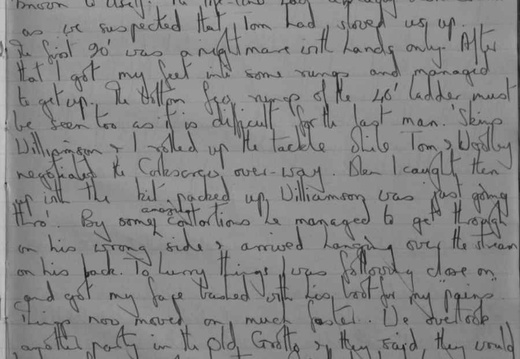 known to itself. The
as we suspected that Tom had stoved us up.
The first 90' was a nightmare with hands only. After
that I got my feet into some rungs and managed
to get up. The bottom few rungs of the 40' ladder must
be seen too as it is difficult for the last man. 'Skip'
Williamson & I rolled up the tackle while Tom & Woolley
negotiated the Corkscrew over-way. Then I caught them
up with the kit packed up, Williamson was just going
thro'. By some amazing contortions he managed to get through
on his wrong side & arrived hanging over the stream
on his back. To hurry things I was following close on
and got my face bashed with his boot for my pains.
Things now moved on much faster. We overtook
another party in the Old Grotto & they said, they would